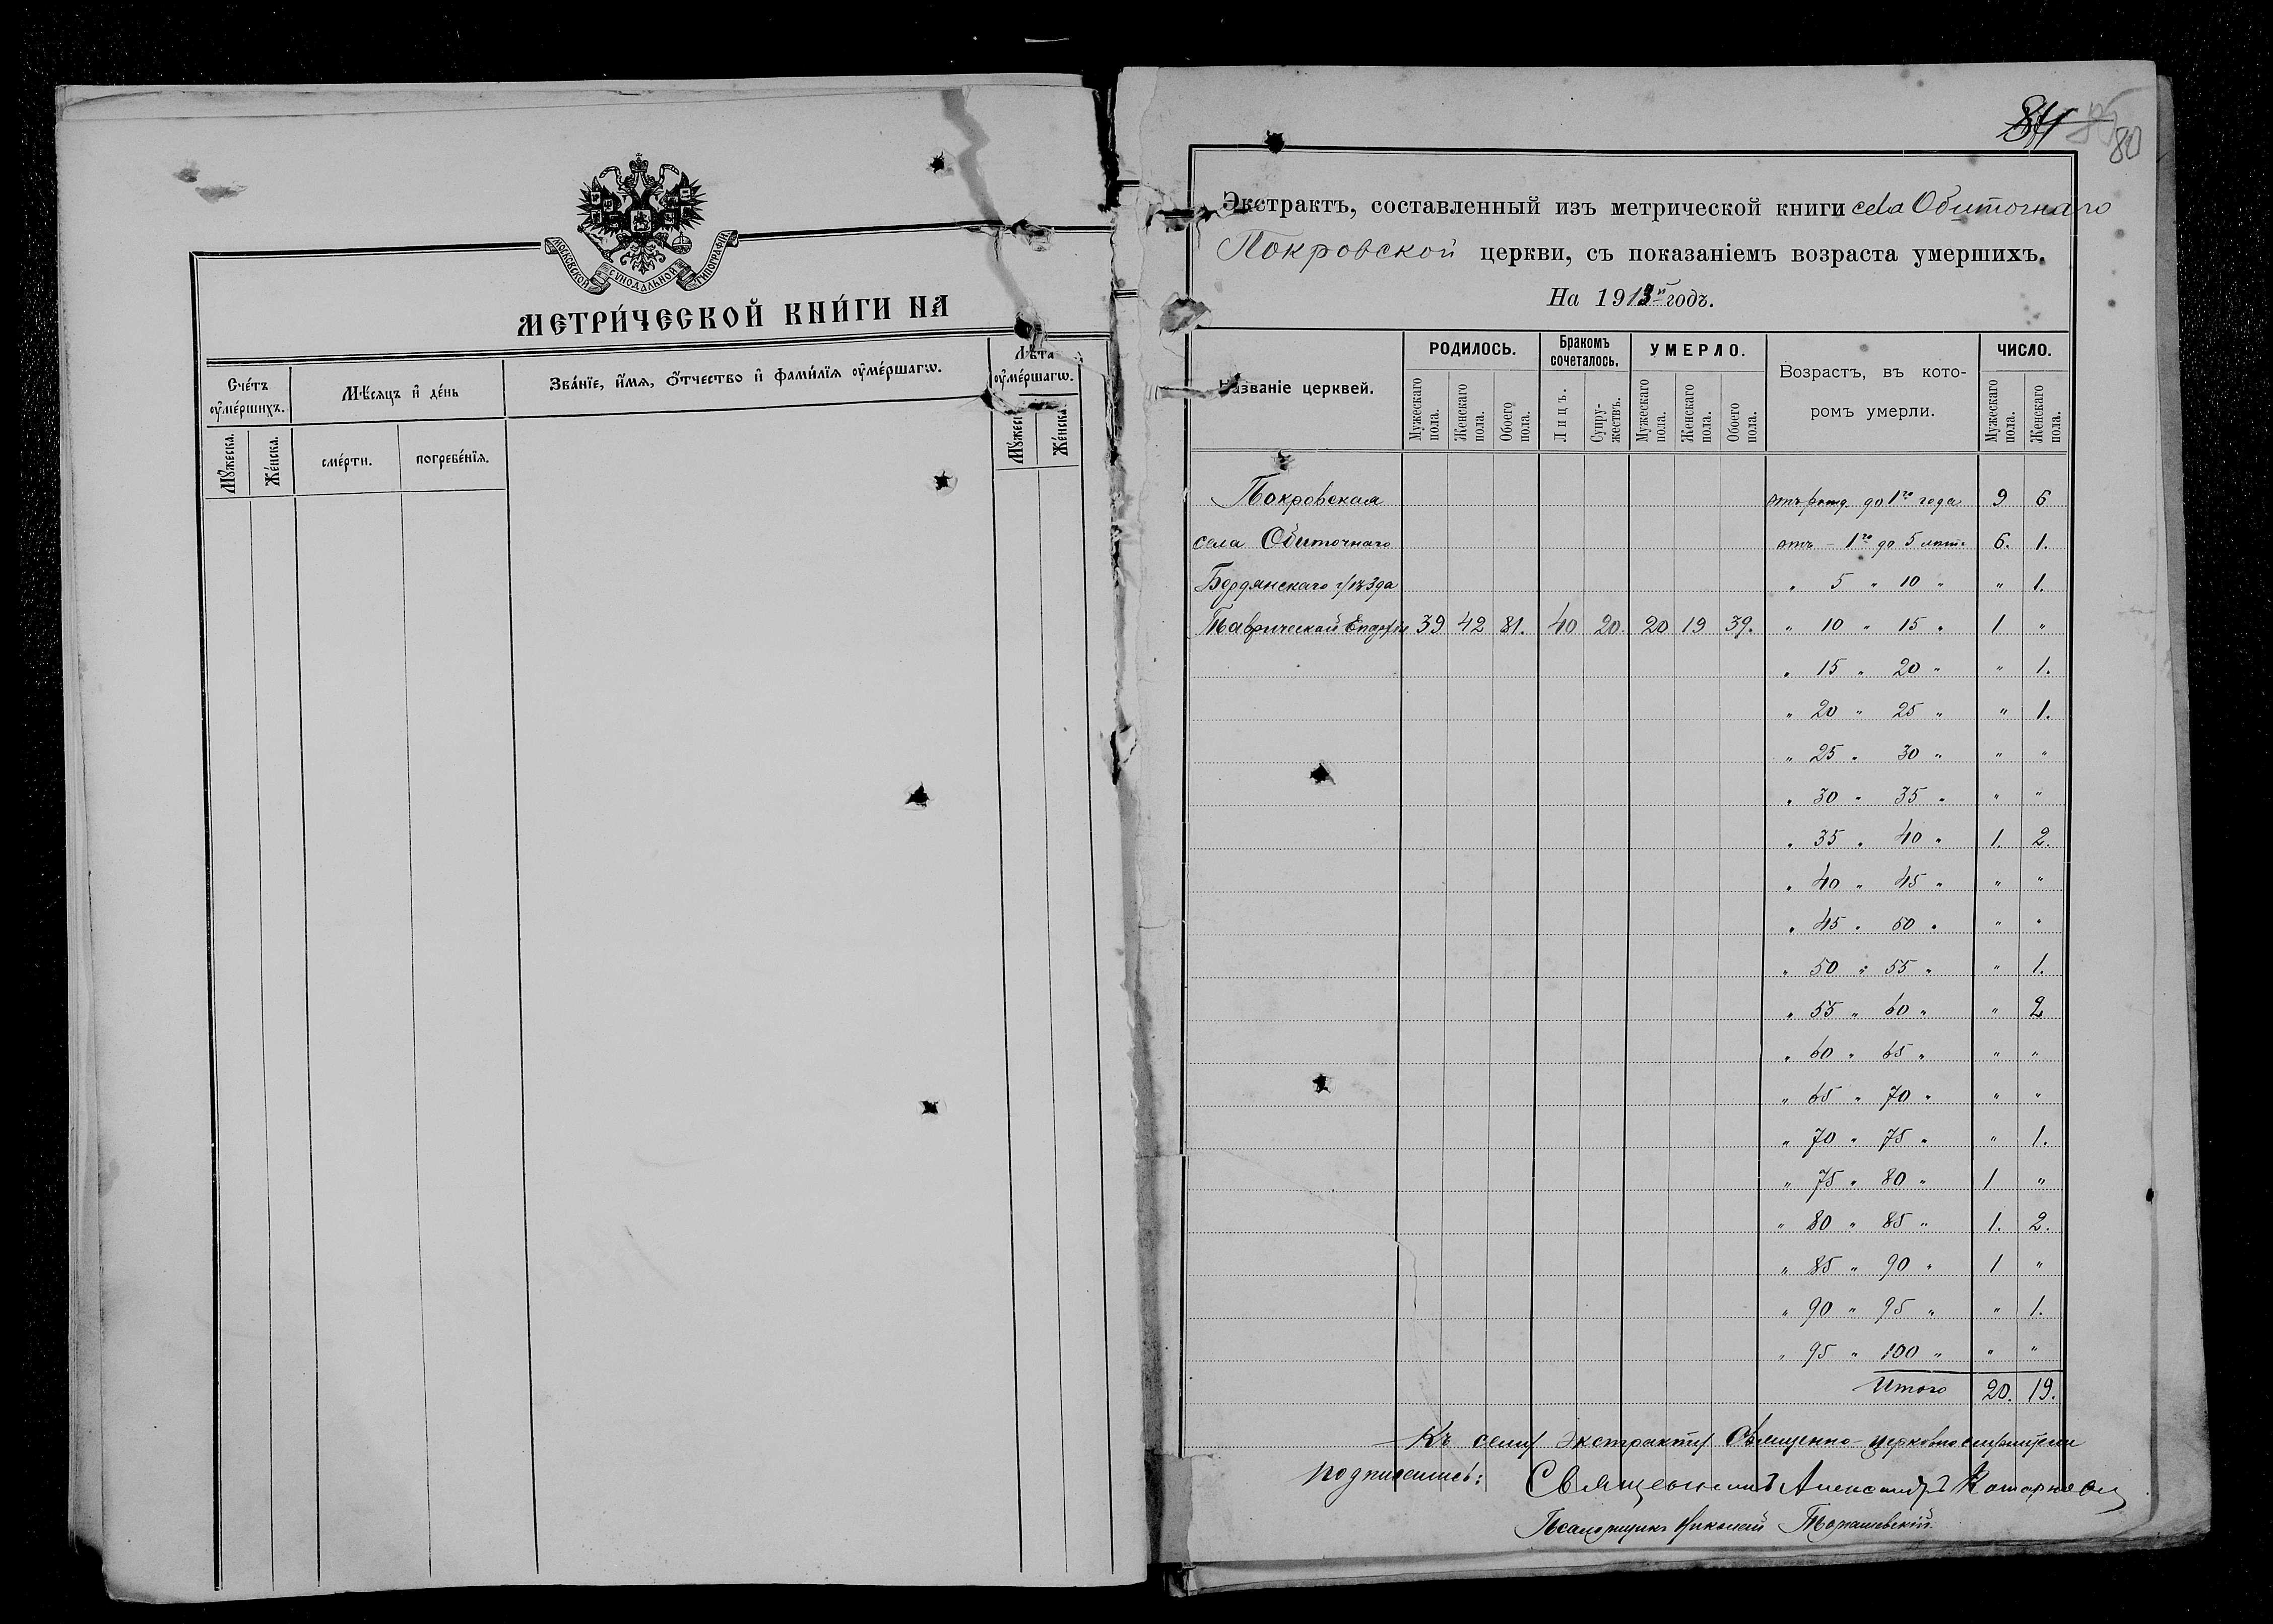 МОСКОВСКОЙ СѴНОДАЛЬНОЙ ТИПОГРАФІИ
МЕТРИ́ЧЕСКОЙ КНИ́ГИ НА
Сче́тъ оу҆ме́ршихъ.
Мѣ́сяцъ и҆ де́нь
Зва́нїе, и҆́мѧ, ѻ҆́тчество и҆ фами́лїѧ оу҆ме́ршагѡ.
Лѣ́та оу҆ме́ршагѡ.
Мꙋ́жеска.
Же́нска.
сме́рти.
погребе́нїѧ.
Мꙋ́жеска
Же́нска.
84
80
Экстрактъ, составленный изъ метрической книги села Обиточнаго
Покровской церкви, съ показаніемъ возраста умершихъ.
На 1913й годъ.
Названіе церквей.
РОДИЛОСЬ.
Бракомъ сочеталось.
УМЕРЛО.
Возрастъ, въ кото-
ромъ умерли.
ЧИСЛО.
Мужескаго пола.
Женскаго пола.
Обоего пола.
Лицъ.
Супру-
жествъ.
Мужескаго пола.
Женскаго пола.
Обоего пола.
Мужескаго пола.
Женскаго пола.
Покровская отъ рожд. до 1го года 9 6
села Обиточнаго отъ – 1го до 5 лѣт. 6. 1.
Бердянскаго уѣзда " 5 " 10 " " 1.
Таврической Епархіи 39 42 81. 40 20. 20 19 39. " 10 " 15 " 1 "
" 15 " 20 " " 1.
" 20 " 25 " " 1.
" 25 " 30 " " "
" 30 " 35 " " "
" 35 " 40 " 1. 2.
" 40 " 45 " " "
" 45 " 50 " " "
" 50 " 55 " " 1.
" 55 " 60 " " 2
" 60 " 65 " " "
" 65 " 70 " " "
" 70 " 75 " " 1.
" 75 " 80 " 1 "
" 80 " 85 " 1. 2.
" 85 " 90 " 1 "
" 90 " 95 " " 1.
" 95 " 100 " " "
Итого 20. 19.
Къ сему экстракту Священно-церковнослужители
подписались: Священникъ Александръ
Псаломщикъ Николай